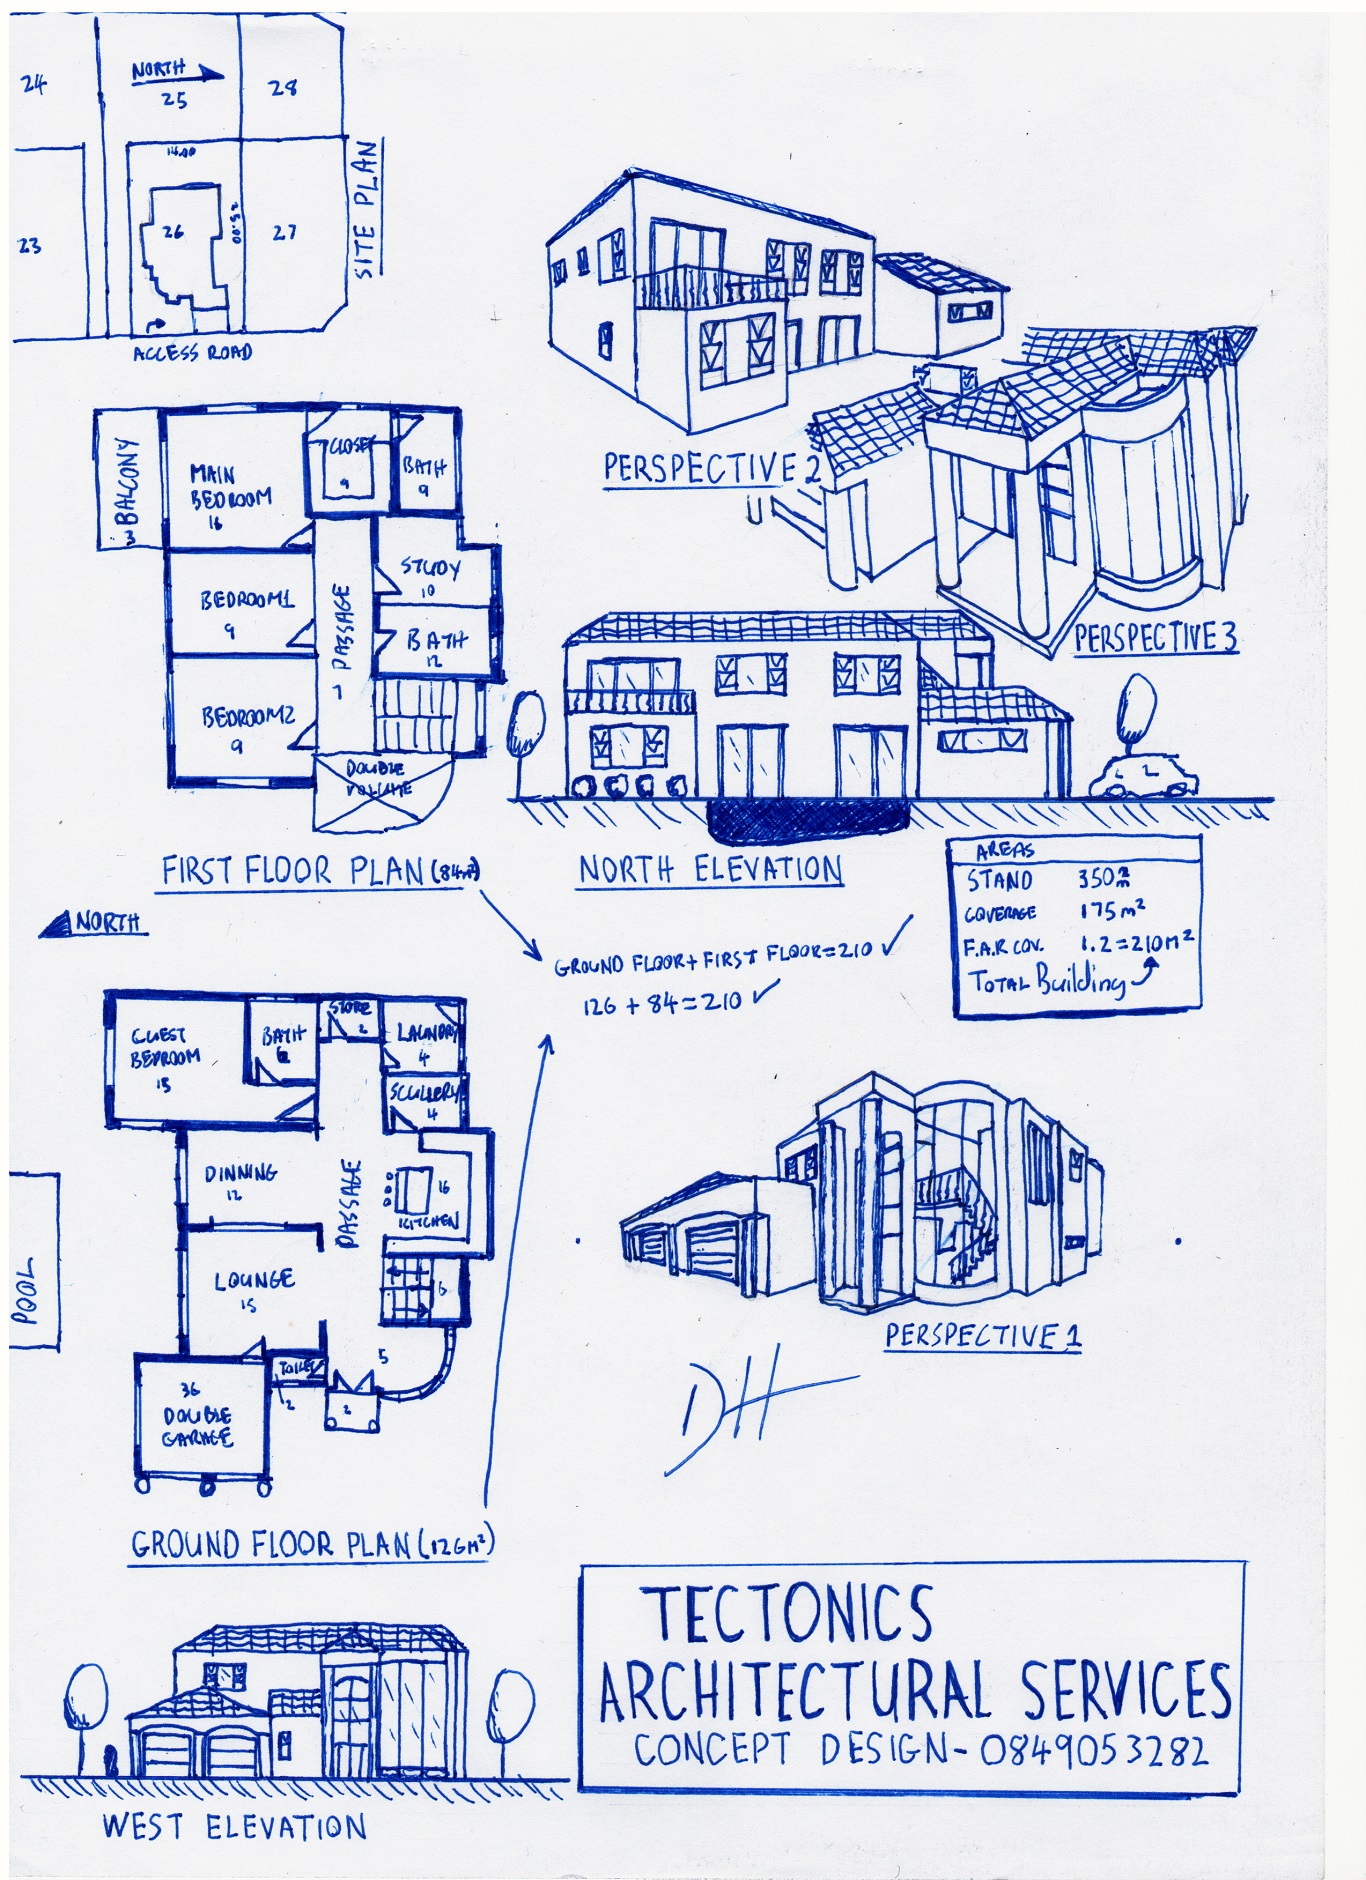 24
NORTH
25
28
14.00
23
26
25.00
27
SITE PLAN
ACCESS ROAD
PERSPECTIVE 2
PERSPECTIVE 3
BALCONY
3
MAIN
BEDROOM
16
CLOSET
9
BATH
9
BEDROOM1
9
PASSAGE
7
STUDY
10
BATH
12
BEDROOM2
9
DOUBLE
VOLUME
FIRST FLOOR PLAN (84m²)
NORTH ELEVATION
AREAS
STAND 350m²
COVERAGE 175m²
F.A.R COV. 1.2=210M²
TOTAL Building
NORTH
GROUND FLOOR+FIRST FLOOR=210 ✓
126 + 84=210 ✓
GUEST
BEDROOM
15
BATH
6
STORE
2
LAUNDRY
4
SCULLERY
4
DINNING
12
PASSAGE
16
KITCHEN
LOUNGE
15
6
POOL
TOILET
2
5
2
36
DOUBLE
GARAGE
GROUND FLOOR PLAN (126M²)
PERSPECTIVE 1
DH
WEST ELEVATION
TECTONICS
ARCHITECTURAL SERVICES
CONCEPT DESIGN-0849053282